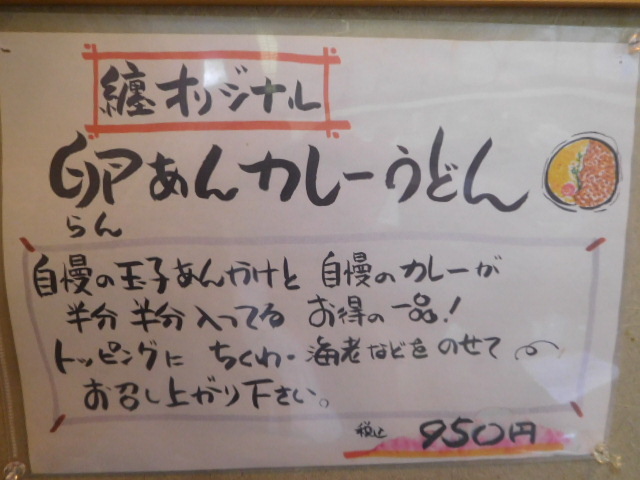 纏オリジナル
卵あんカレーうどん
らん
自慢の玉子あんかけと 自慢のカレーが
半分 半分 入ってる お得の一品!
トッピングに ちくわ・海老などを のせて
お召し上がり下さい。
税込 950円